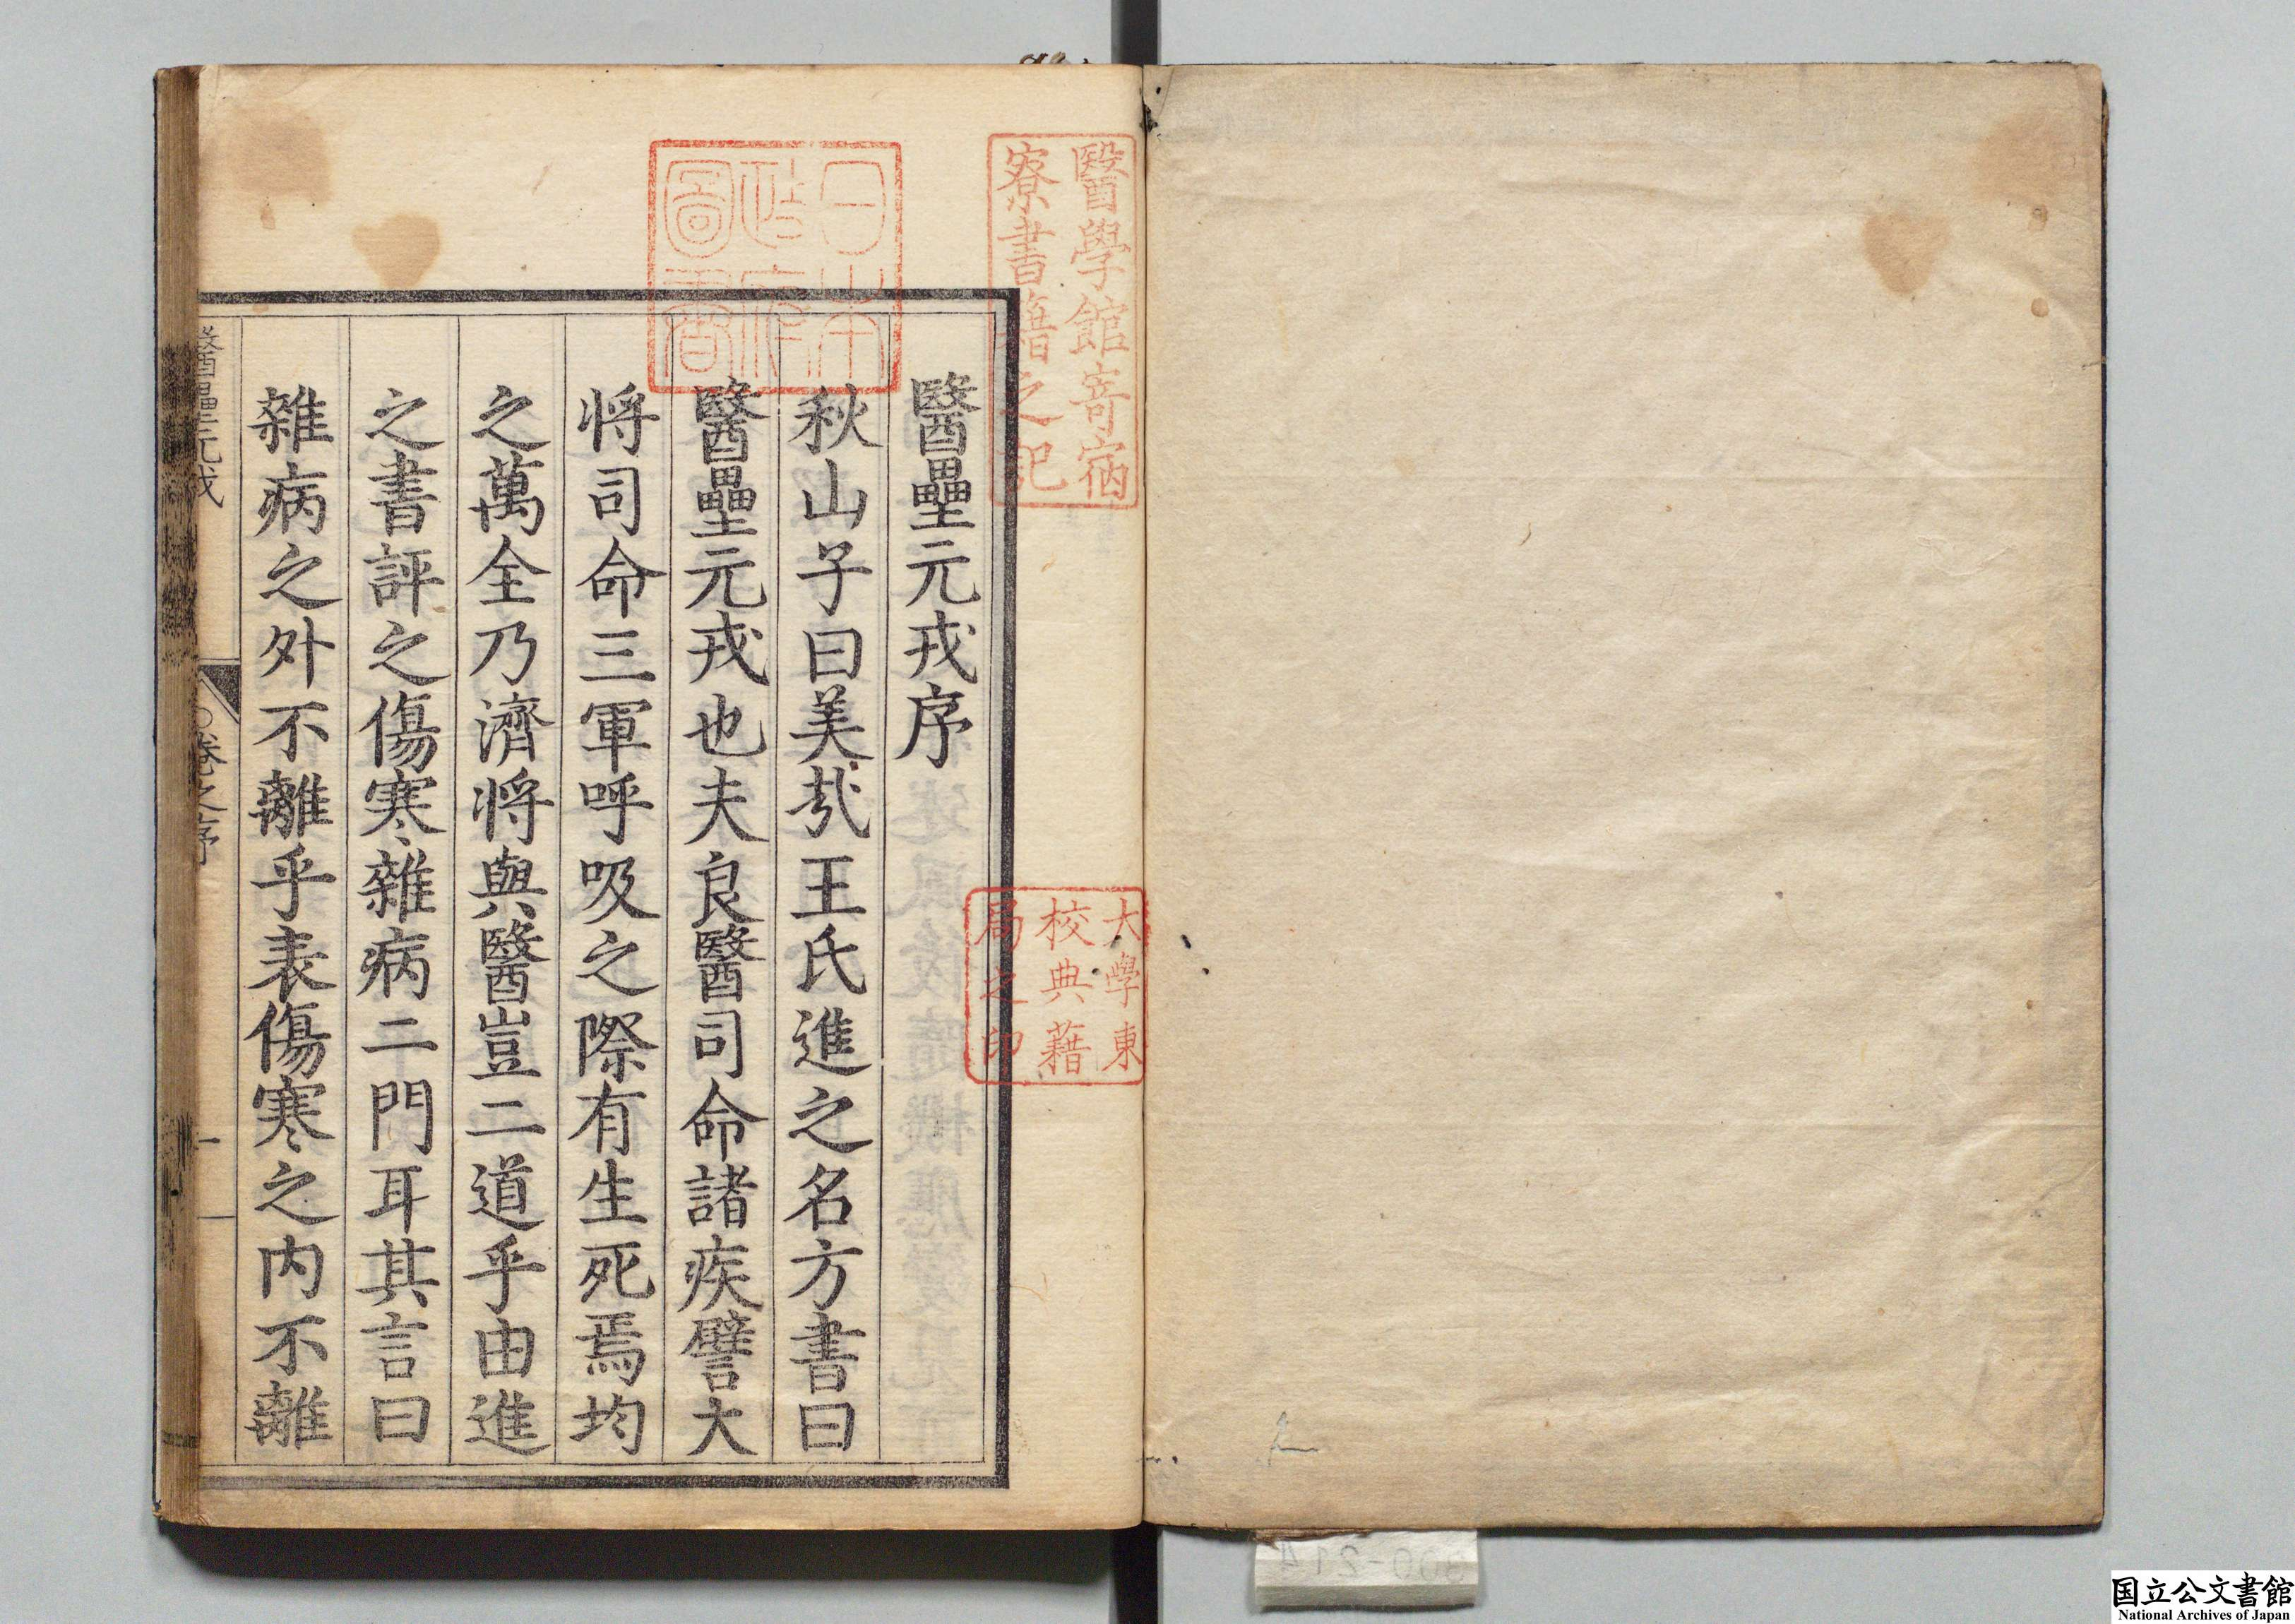 醫壘元戎序
秋山子曰美㦲王氏進之名方書曰
醫壘元戎也夫良醫司命諸疾譬大
将司命三軍呼吸之際有生死焉均
之萬全乃濟将與醫豈二道乎由進
之書評之傷寒雜病二門耳其言曰
雜病之外不離乎表傷寒之内不離
醫壘元戎
卷之序
一
醫學館寄宿
寮書籍之記
日本
政府
圖書
大學東
校典藉
局之印
300-214
国立公文書館
National Archives of Japan